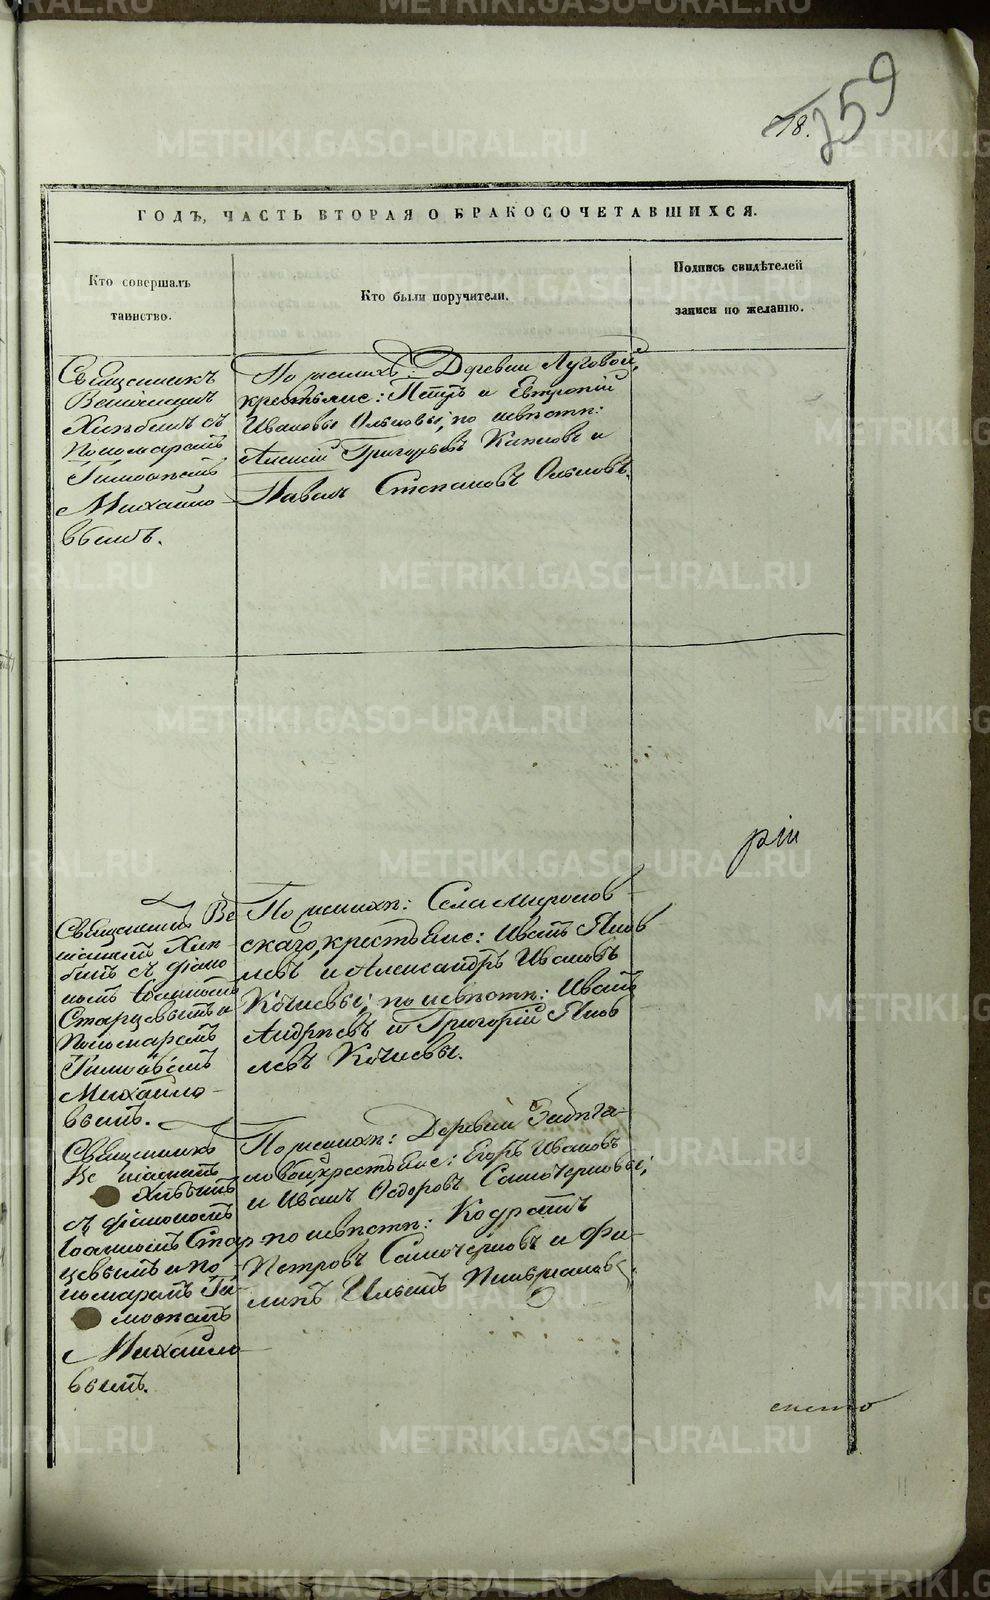 259
78.
ГОДЪ, ЧАСТЬ ВТОРАЯ О БРАКОСОЧЕТАВШИХСЯ.
Кто совершалъ
таинство.
Кто были поручители.
Подпись свидѣтелей
записи по желанію.
Священникъ
Веніаминъ
Хлѣбинъ съ
Пономаремъ
Тимоѳеемъ
Михайло
вымъ.
По женихѣ: Деревни Луговой,
крестьяне: Петръ и Евтропій
Ивановы Ольковы; по невѣстѣ:
Алексій Григорьевъ и
Павелъ Степановъ
Священникъ Ве
ніаминъ Хлѣ-
бинъ съ діако
номъ Іоанномъ
Старцевымъ и
Пономаремъ
Тимоѳеемъ
Михайло-
вымъ.
По женихѣ: Села Миронов
скаго, крестьяне: Иванъ Яков
левъ и Александръ Ивановъ
Кочневы; по невѣстѣ: Иванъ
Андреевъ и Григорій Яков
левъ Кочневы.
Священникъ
Веніаминъ
Хлѣбинъ
съ діакономъ
Іоанномъ Стар
цевымъ и по
номаремъ Ти-
моѳеемъ
Михайло
вымъ.
По женихѣ: Деревни
крестьяне: Егоръ Ивановъ
и Иванъ Ѳедоровъ Самочерновы;
по невѣстѣ: Кодратъ
Петровъ Самочерновъ и Фи-
липъ Ильинъ
рін
METRIKI.GASO-URAL.RU